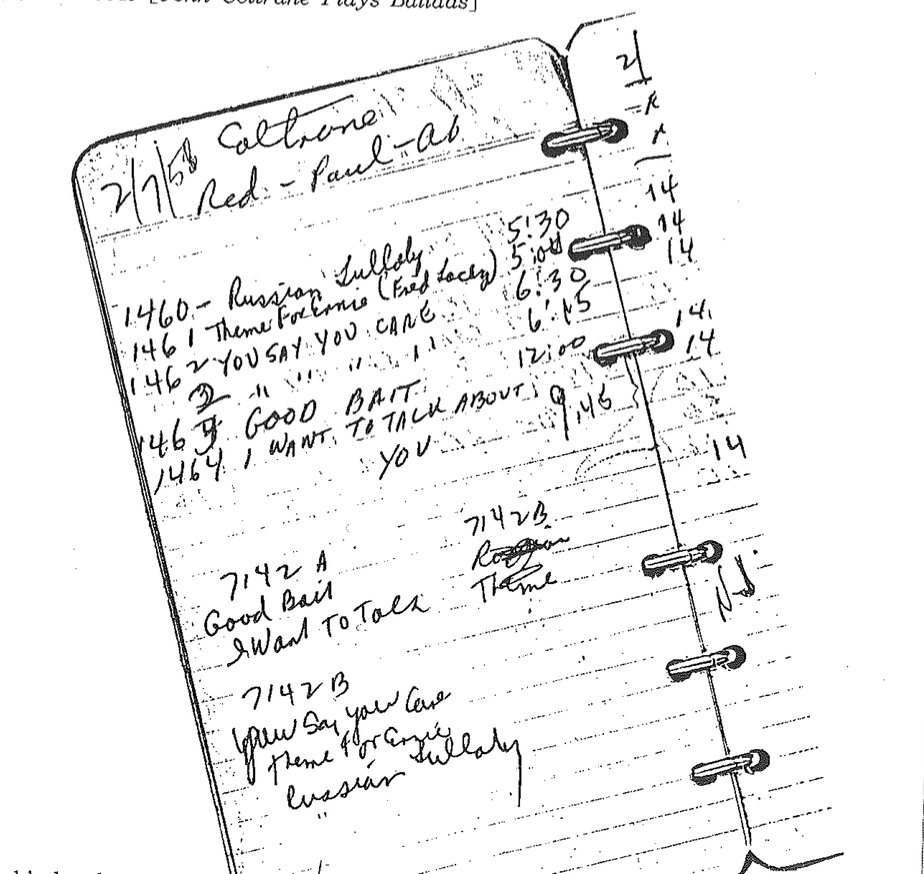 [John Coltrane Plays Ballads]
2/7/58 Coltrane
Red - Paul - Ab
1460 - Russian Lullaby 5:30
1461 Theme For Ernie (Fred Lacey) 5:04
1462 YOU SAY YOU CARE 6:30
" " " " 6:15
1463 GOOD BAIT 12:00
1464 I WANT TO TALK ABOUT 9:45
YOU
7142 A
Good Bait
I Want To Talk
7142 B
Theme
7142 B
You Say You Care
Theme For Ernie
Russian Lullaby
2/
14
14
14
14
14
14